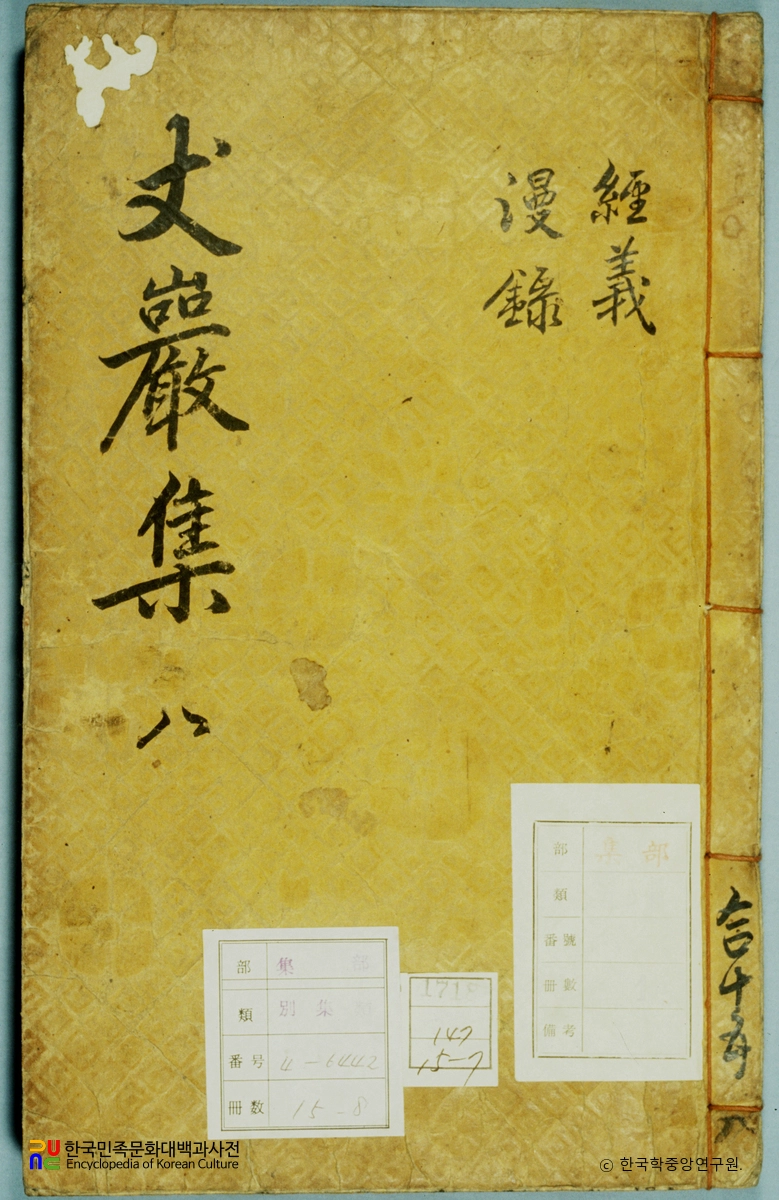 經義
漫錄
丈巖集 八
合十五
部 集部
類
番號
冊數
備考
部 集 部
類 別集
番号 4-6442
冊数 15-8
1718
147
15-7
한국민족문화대백과사전
Encyclopedia of Korean Culture
ⓒ 한국학중앙연구원.